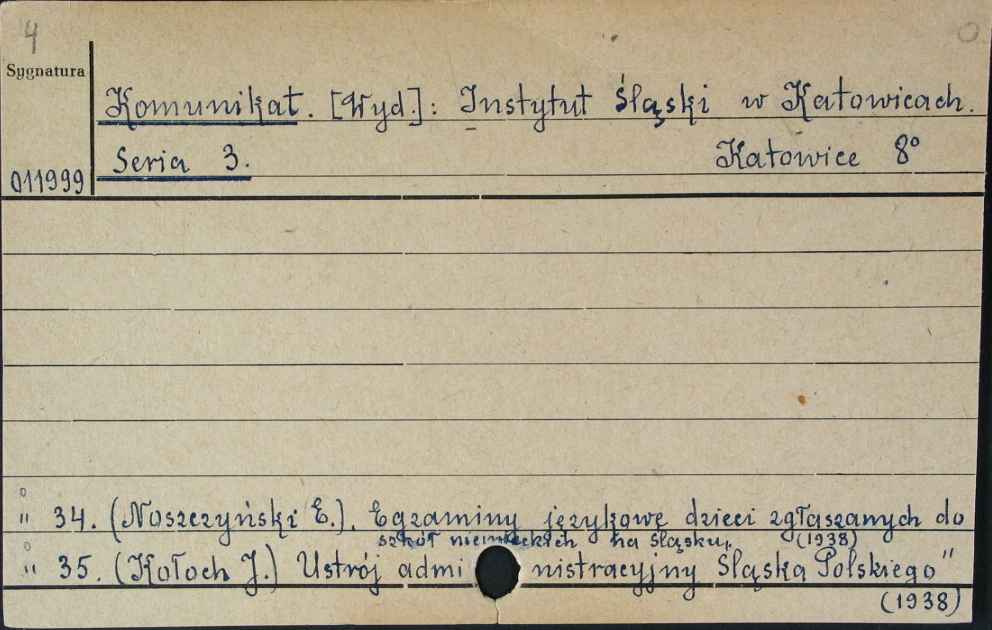 4
Sygnatura
Komunikat. [Wyd.]: Instytut Śląski w Katowicach.
Seria 3. Katowice 8°
011999
" 34. (Noszczyński E.). Egzaminy językowe dzieci zgłaszanych do
szkół niemieckich na Śląsku. (1938)
" 35. (Kołoch J.) Ustrój administracyjny Śląska Polskiego"
(1938)